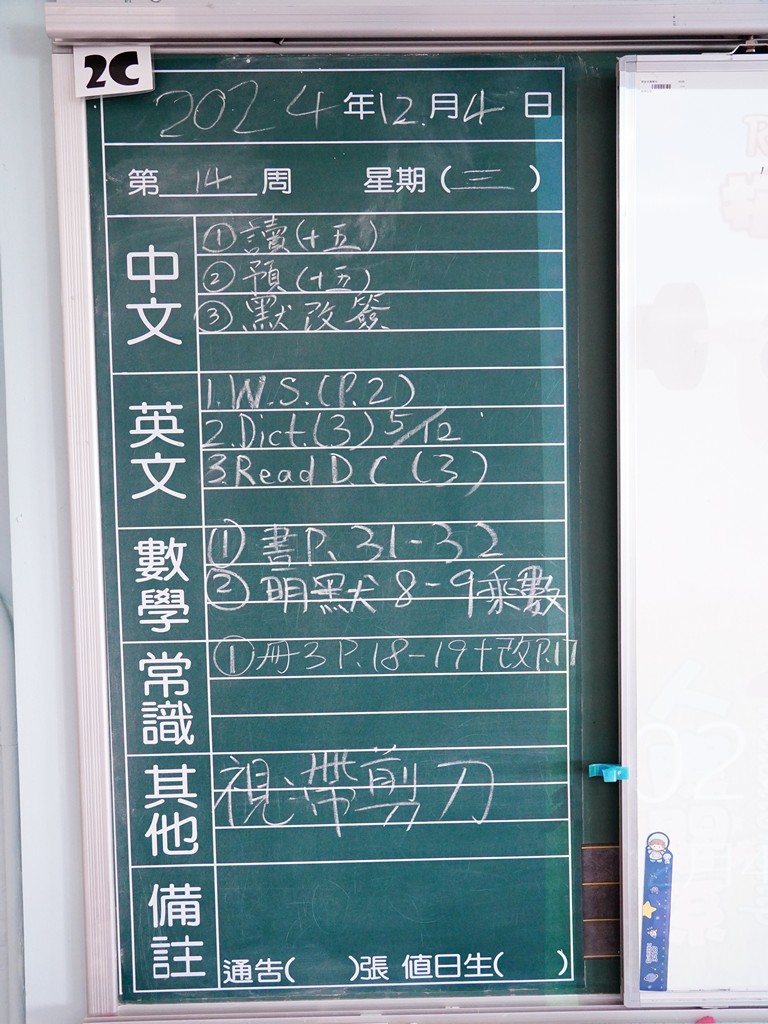 2C
2024年12月4日
第14周 星期(三)
中文
①讀(十五)
②預(十五)
③默改簽
英文
1.W.S.(P.2)
2.Dict.(3) 5/12
3.Read D.C (3)
數學
①書P.31-32
②明默8-9乘數
常識
①冊3P.18-19+改P.17
其他
視:帶剪刀
備註
通告( )張 值日生( )